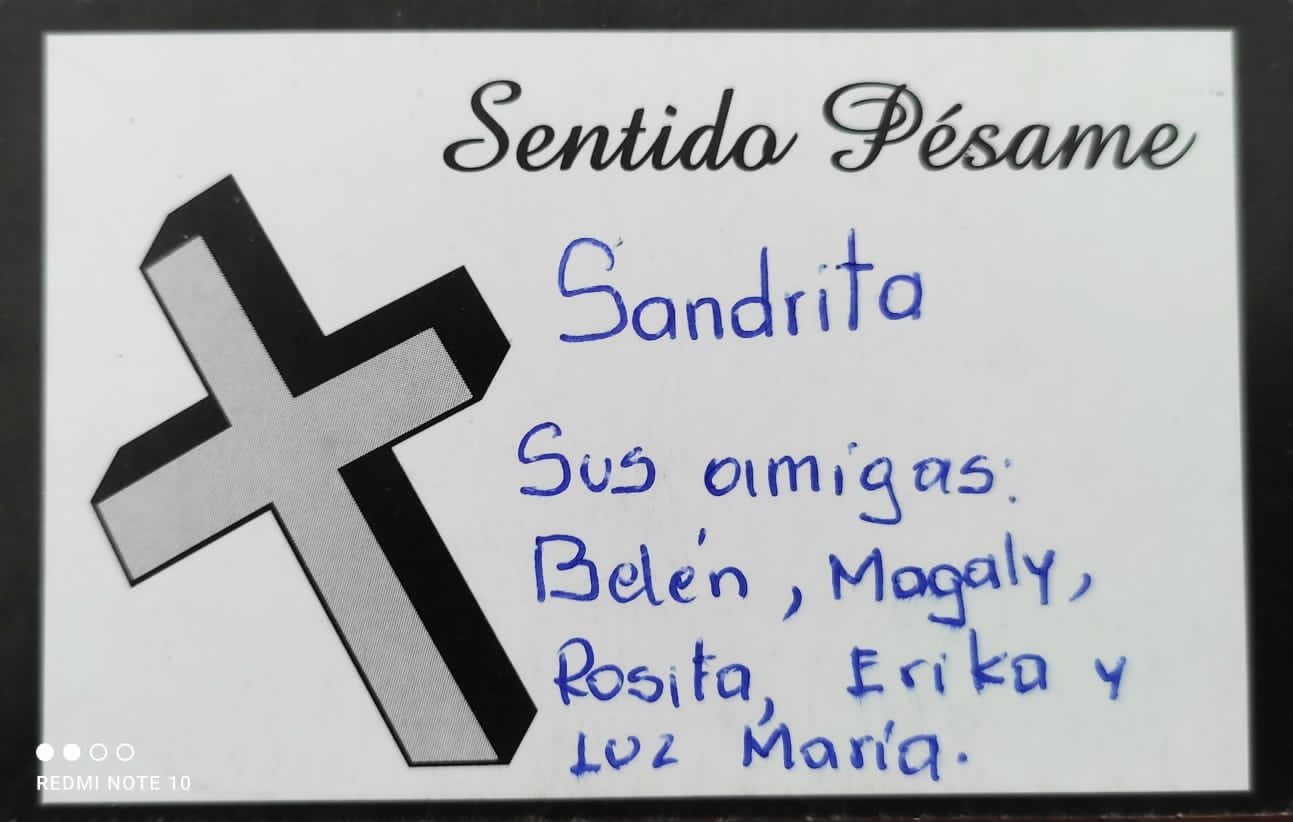 Sentido Pésame
Sandrita
Sus amigas:
Belén, Magaly,
Rosita, Erika y
Luz María.
REDMI NOTE 10